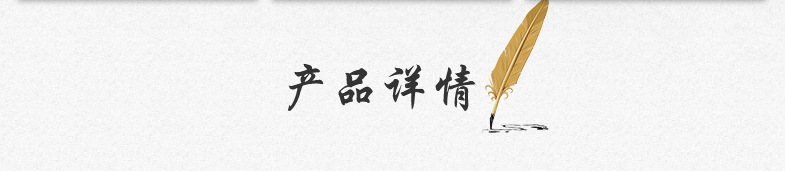 产品详情